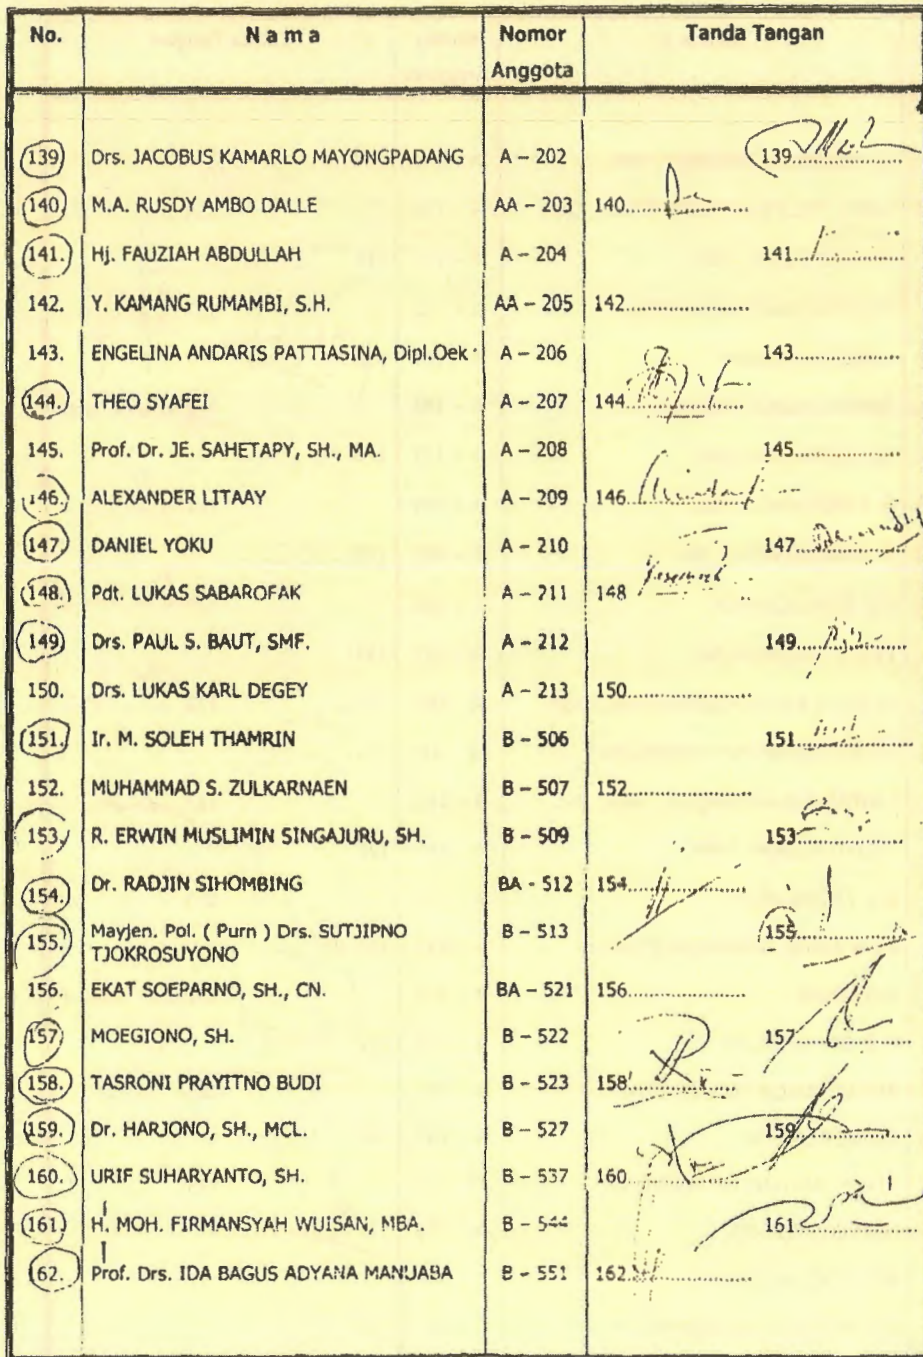 No. Nama Nomor Anggota Tanda Tangan
139 Drs. JACOBUS KAMARLO MAYONGPADANG A – 202 139....................
140. M.A. RUSDY AMBO DALLE AA – 203 140....................
141. Hj. FAUZIAH ABDULLAH A – 204 141....................
142. Y. KAMANG RUMAMBI, S.H. AA – 205 142....................
143. ENGELINA ANDARIS PATTIASINA, Dipl.Oek A – 206 143....................
144. THEO SYAFEI A – 207 144....................
145. Prof. Dr. JE. SAHETAPY, SH., MA. A – 208 145....................
146. ALEXANDER LITAAY A – 209 146
147 DANIEL YOKU A – 210 147....................
148. Pdt. LUKAS SABAROFAK A – 211 148
149 Drs. PAUL S. BAUT, SMF. A – 212 149....................
150. Drs. LUKAS KARL DEGEY A – 213 150....................
151. Ir. M. SOLEH THAMRIN B – 506 151....................
152. MUHAMMAD S. ZULKARNAEN B – 507 152....................
153 R. ERWIN MUSLIMIN SINGAJURU, SH. B – 509 153....................
154. Dr. RADJIN SIHOMBING BA - 512 154....................
155. Mayjen. Pol. ( Purn ) Drs. SUTJIPNO B – 513 155....................
TJOKROSUYONO
156. EKAT SOEPARNO, SH., CN. BA – 521 156....................
157 MOEGIONO, SH. B – 522 157....................
158. TASRONI PRAYITNO BUDI B – 523 158....................
159. Dr. HARJONO, SH., MCL. B – 527 159....................
160. URIF SUHARYANTO, SH. B – 537 160....................
161 H. MOH. FIRMANSYAH WUISAN, MBA. B – 544 161....................
162. Prof. Drs. IDA BAGUS ADYANA MANUABA B – 551 162....................